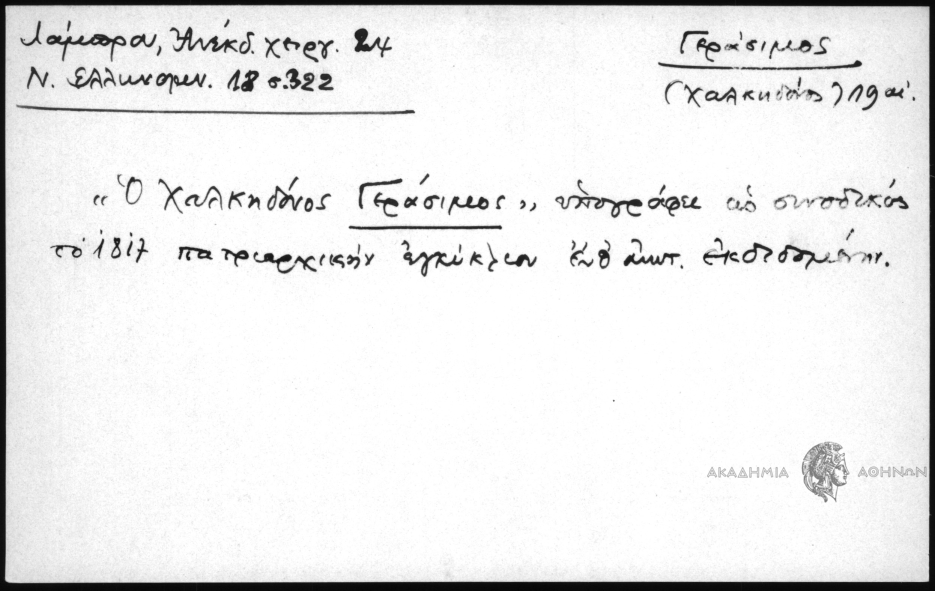 Λάμπρου, Ἀνέκδ. χειργ. 24
Ν. Ἑλληνομν. 18 σ.322
Γεράσιμος
(Χαλκηδόνος) 19 αἰ.
"Ὁ Χαλκηδόνος Γεράσιμος", ὑπογράφει ὡς συνοδικός
τὸ 1817 πατριαρχικὴν ἐγκύκλιον ἐκδεδομένην.
ΑΚΑΔΗΜΙΑ ΑΘΗΝΩΝ